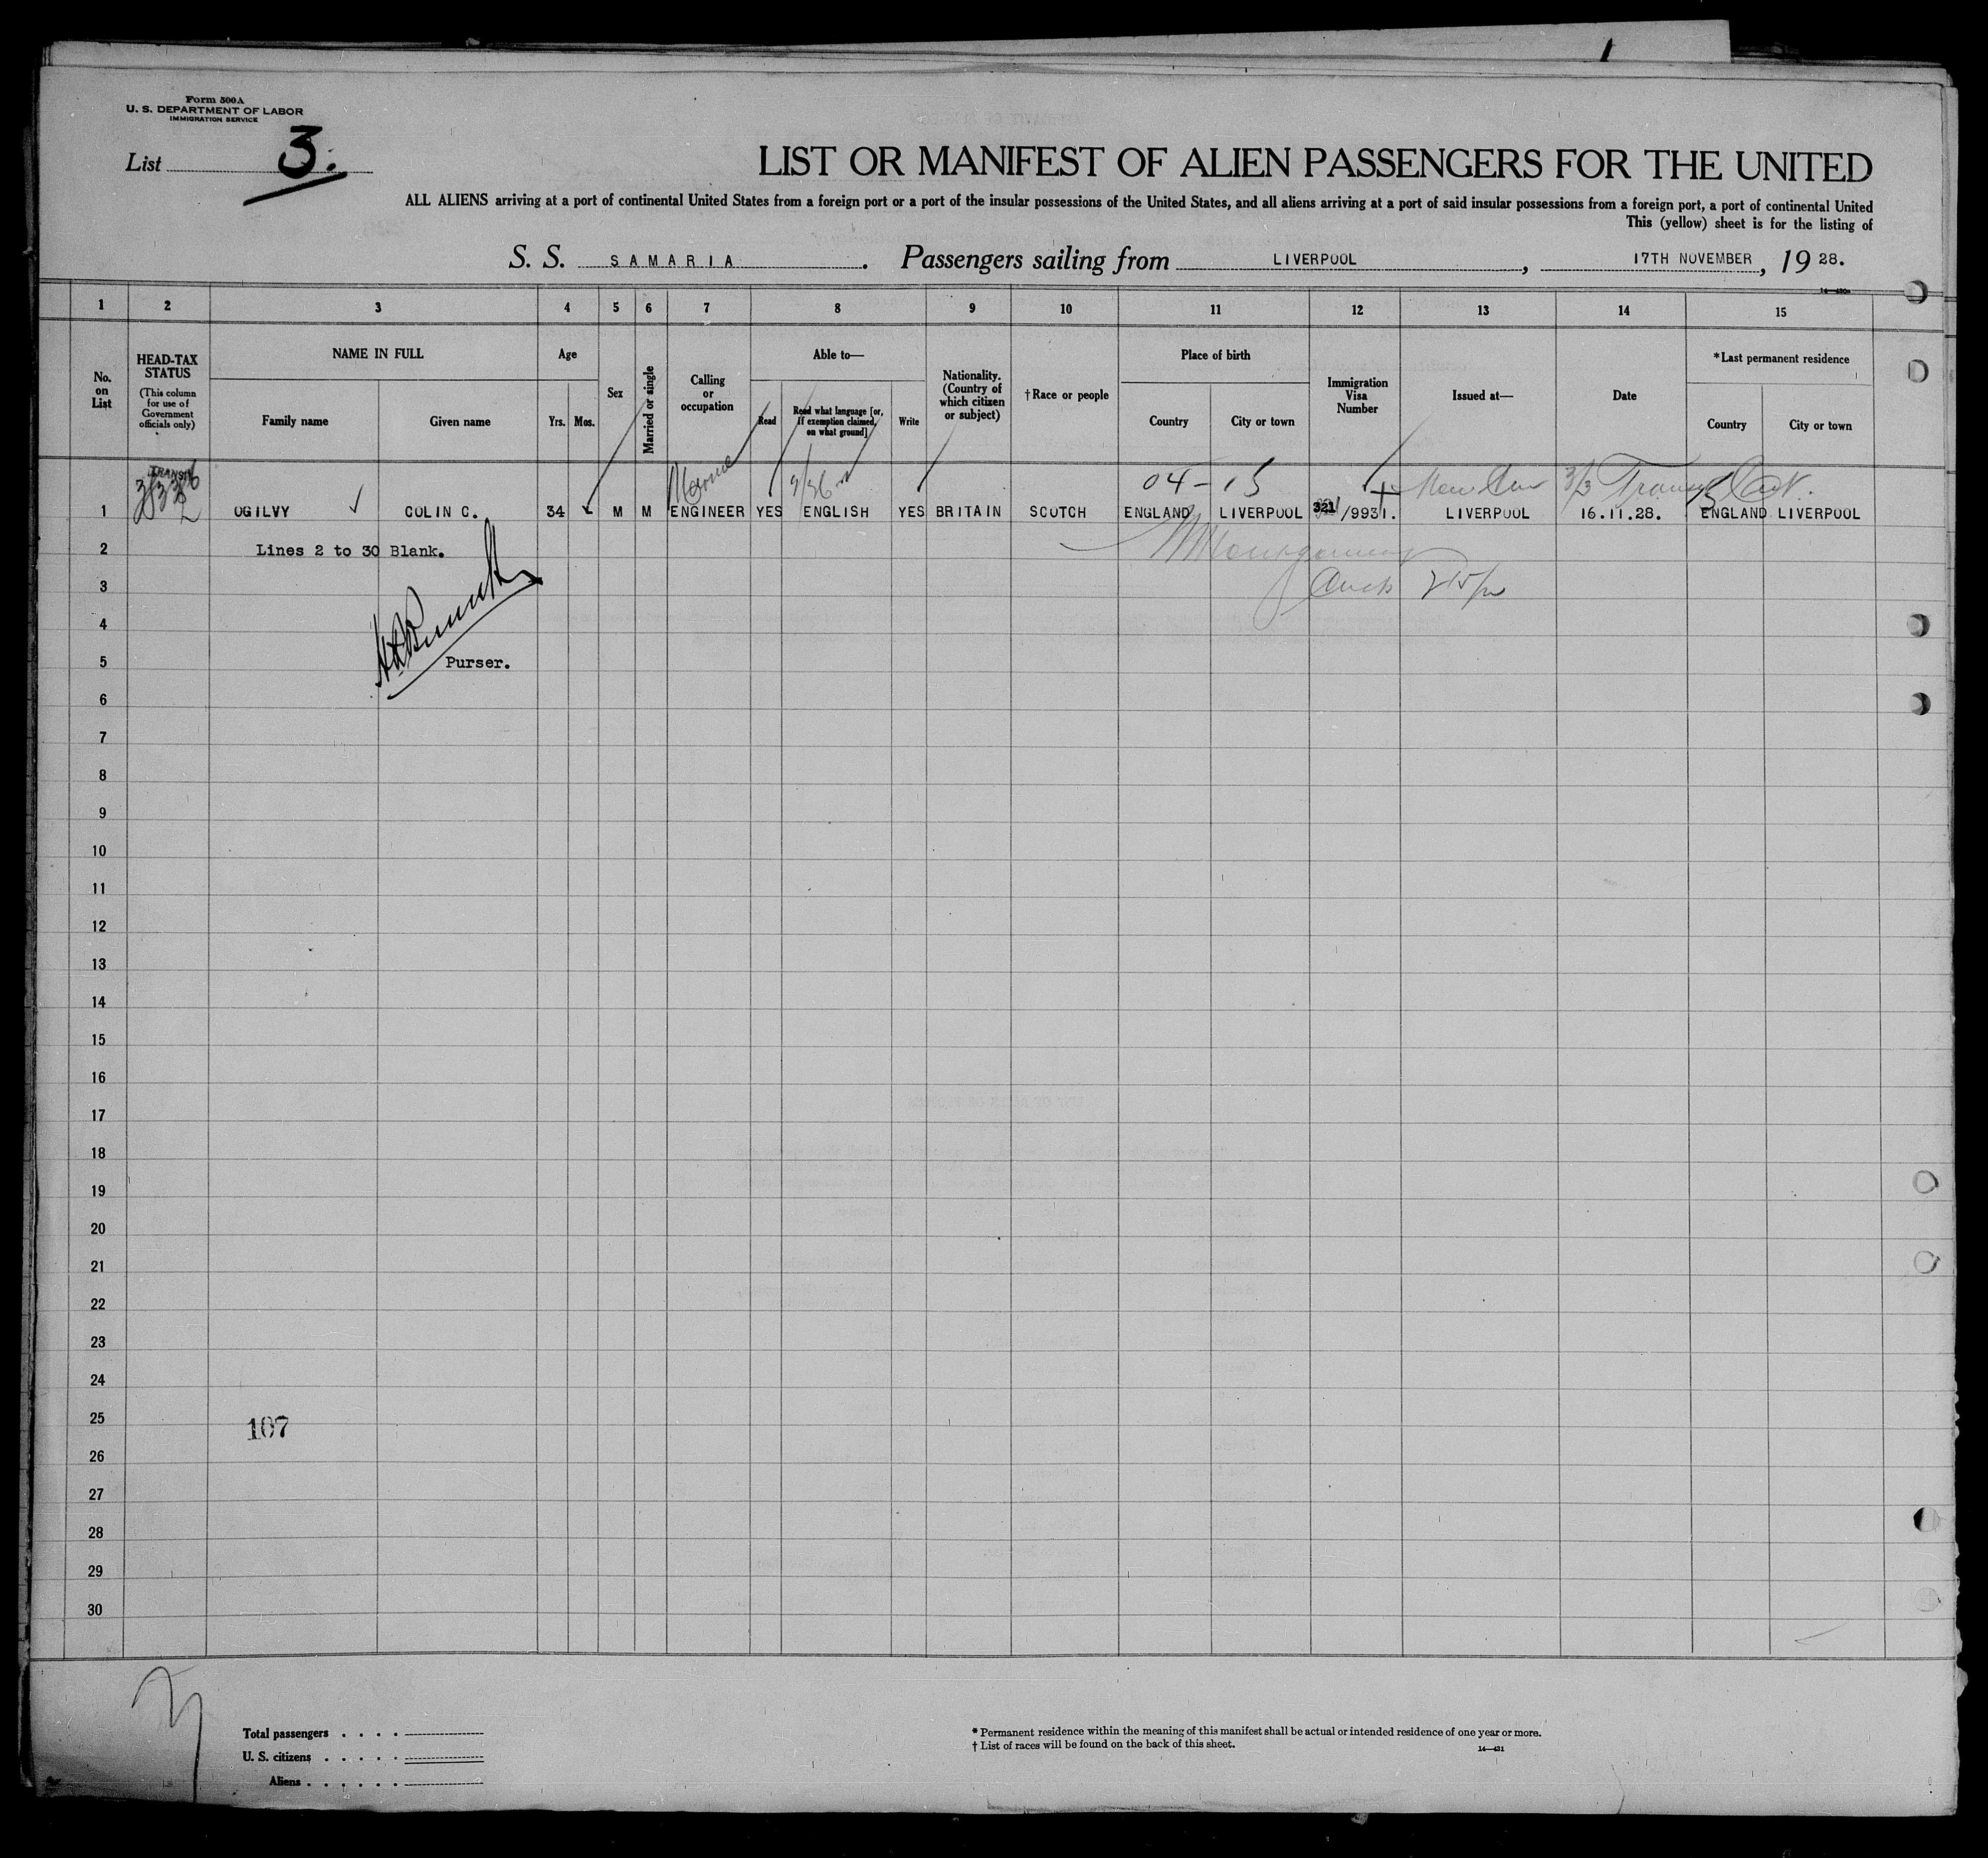 Form 500A
U. S. DEPARTMENT OF LABOR
IMMIGRATION SERVICE
List 3.
LIST OR MANIFEST OF ALIEN PASSENGERS FOR THE UNITED
ALL ALIENS arriving at a port of continental United States from a foreign port or a port of the insular possessions of the United States, and all aliens arriving at a port of said insular possessions from a foreign port, a port of continental United
This (yellow) sheet is for the listing of
S. S. SAMARIA. Passengers sailing from LIVERPOOL, 17TH NOVEMBER, 19 28.
1 2 3 4 5 6 7 8 9 10 11 12 13 14 15
No. on List
HEAD-TAX STATUS
(This column for use of Government officials only)
NAME IN FULL
Family name Given name
Age
Yrs. Mos.
Sex
Married or single
Calling or occupation
Able to—
Read
Read what language [or, if exemption claimed, on what ground]
Write
Nationality. (Country of which citizen or subject)
†Race or people
Place of birth
Country City or town
Immigration Visa Number
Issued at—
Date
*Last permanent residence
Country City or town
TRANSIT
Marine
04 - 15
1 OGILVY COLIN C. 34 M M ENGINEER YES ENGLISH YES BRITAIN SCOTCH ENGLAND LIVERPOOL 321/9931. LIVERPOOL 16.11.28. ENGLAND LIVERPOOL
2 Lines 2 to 30 Blank.
3
4
5 Purser.
6
7
8
9
10
11
12
13
14
15
16
17
18
19
20
21
22
23
24
25
107
26
27
28
29
30
Total passengers
U. S. citizens
Aliens
* Permanent residence within the meaning of this manifest shall be actual or intended residence of one year or more.
† List of races will be found on the back of this sheet.
14—431